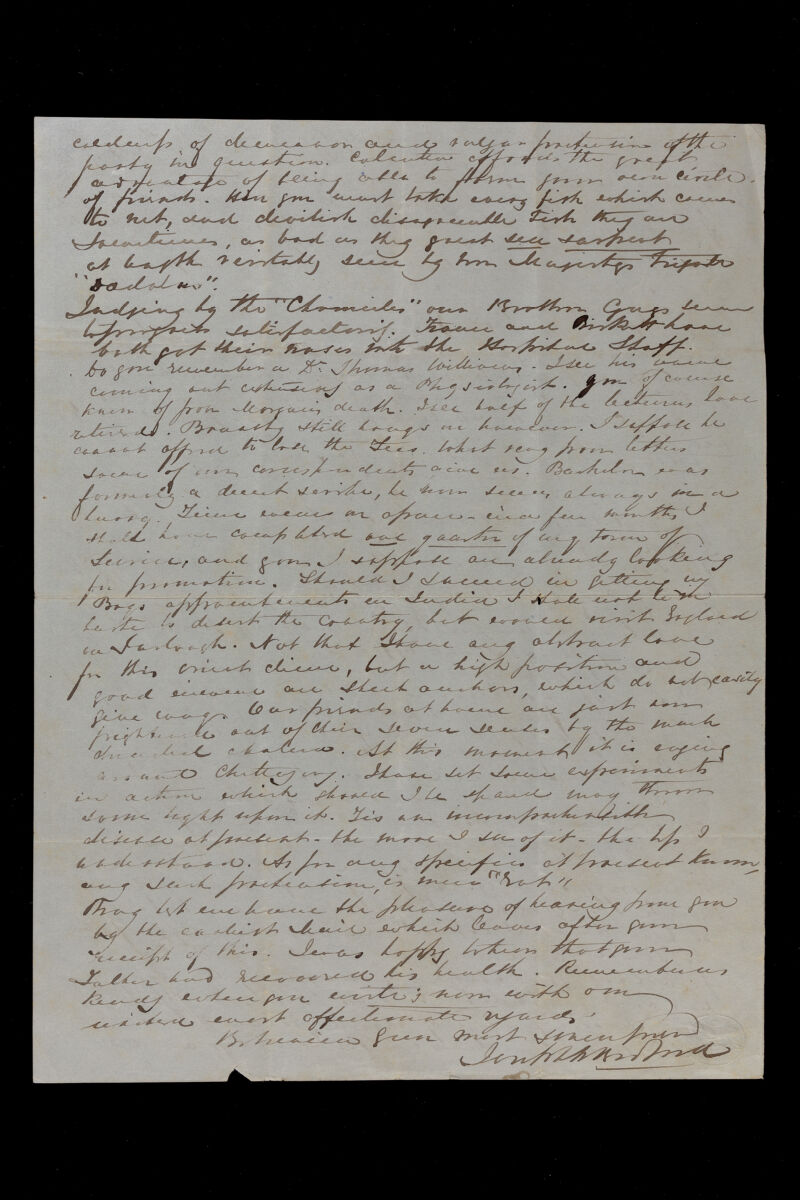 coldness of demeanor and vulgar pretension of the
party in question. Calcutta affords the great
advantage of being able to form your own circle
of friends. Here you must take every fish which comes
to net, and devilish disagreeable fish they are
Sometimes, as bad as the great sea serpent
at length veritably seen by her Majestys Frigate
"Dædalus".
Judging by the "Chronicles" our Brothers Guys seem
to progress satisfactorily. France and Birkett have
both got their noses into the Hospital Staff.
Do you remember a Dr. Thomas Williams. I see his name
coming out extensively as a Physiologist. You of course
know of poor Morgan's death. I see half of the lecturers have
retired. Bransby still hangs on however. I suppose he
cannot afford to lose the Fees. What scag poor letters
some of our correspondents give us. Batchelor was
formerly a decent scribe, he now seems always in a
hurry. Time wears on apace - in a few months I
shall have completed one quarter of my term of
Service, and you I suppose are already looking
for promotion. Should I succeed in getting my
Bags appointments in India I shall not be in
haste to desert the Country, but would visit England
on Furlough. Not that I have any abstract love
for this orient clime, but a high position and
good income are sheet anchors, which do not easily
give way. Our friends at home are just now
frightened out of their seven senses by the much
dreaded cholera. At this moment it is raging
around Chittagong. I have set some experiments
in action which should I be spared may throw
some light upon it. Tis an incomprehensible
disease at present - the more I see of it - the less I
understand. As for any specifics at present known,
any such pretension, is mere "rot".
Pray let me have the pleasure of hearing from you
by the earliest Mail which leaves after your
receipt of this. I was happy to hear that your
Father had recovered his health. Remember us
kindly when you write; now with our
united most affectionate regards.
Believe me your most sincere friend
Joseph